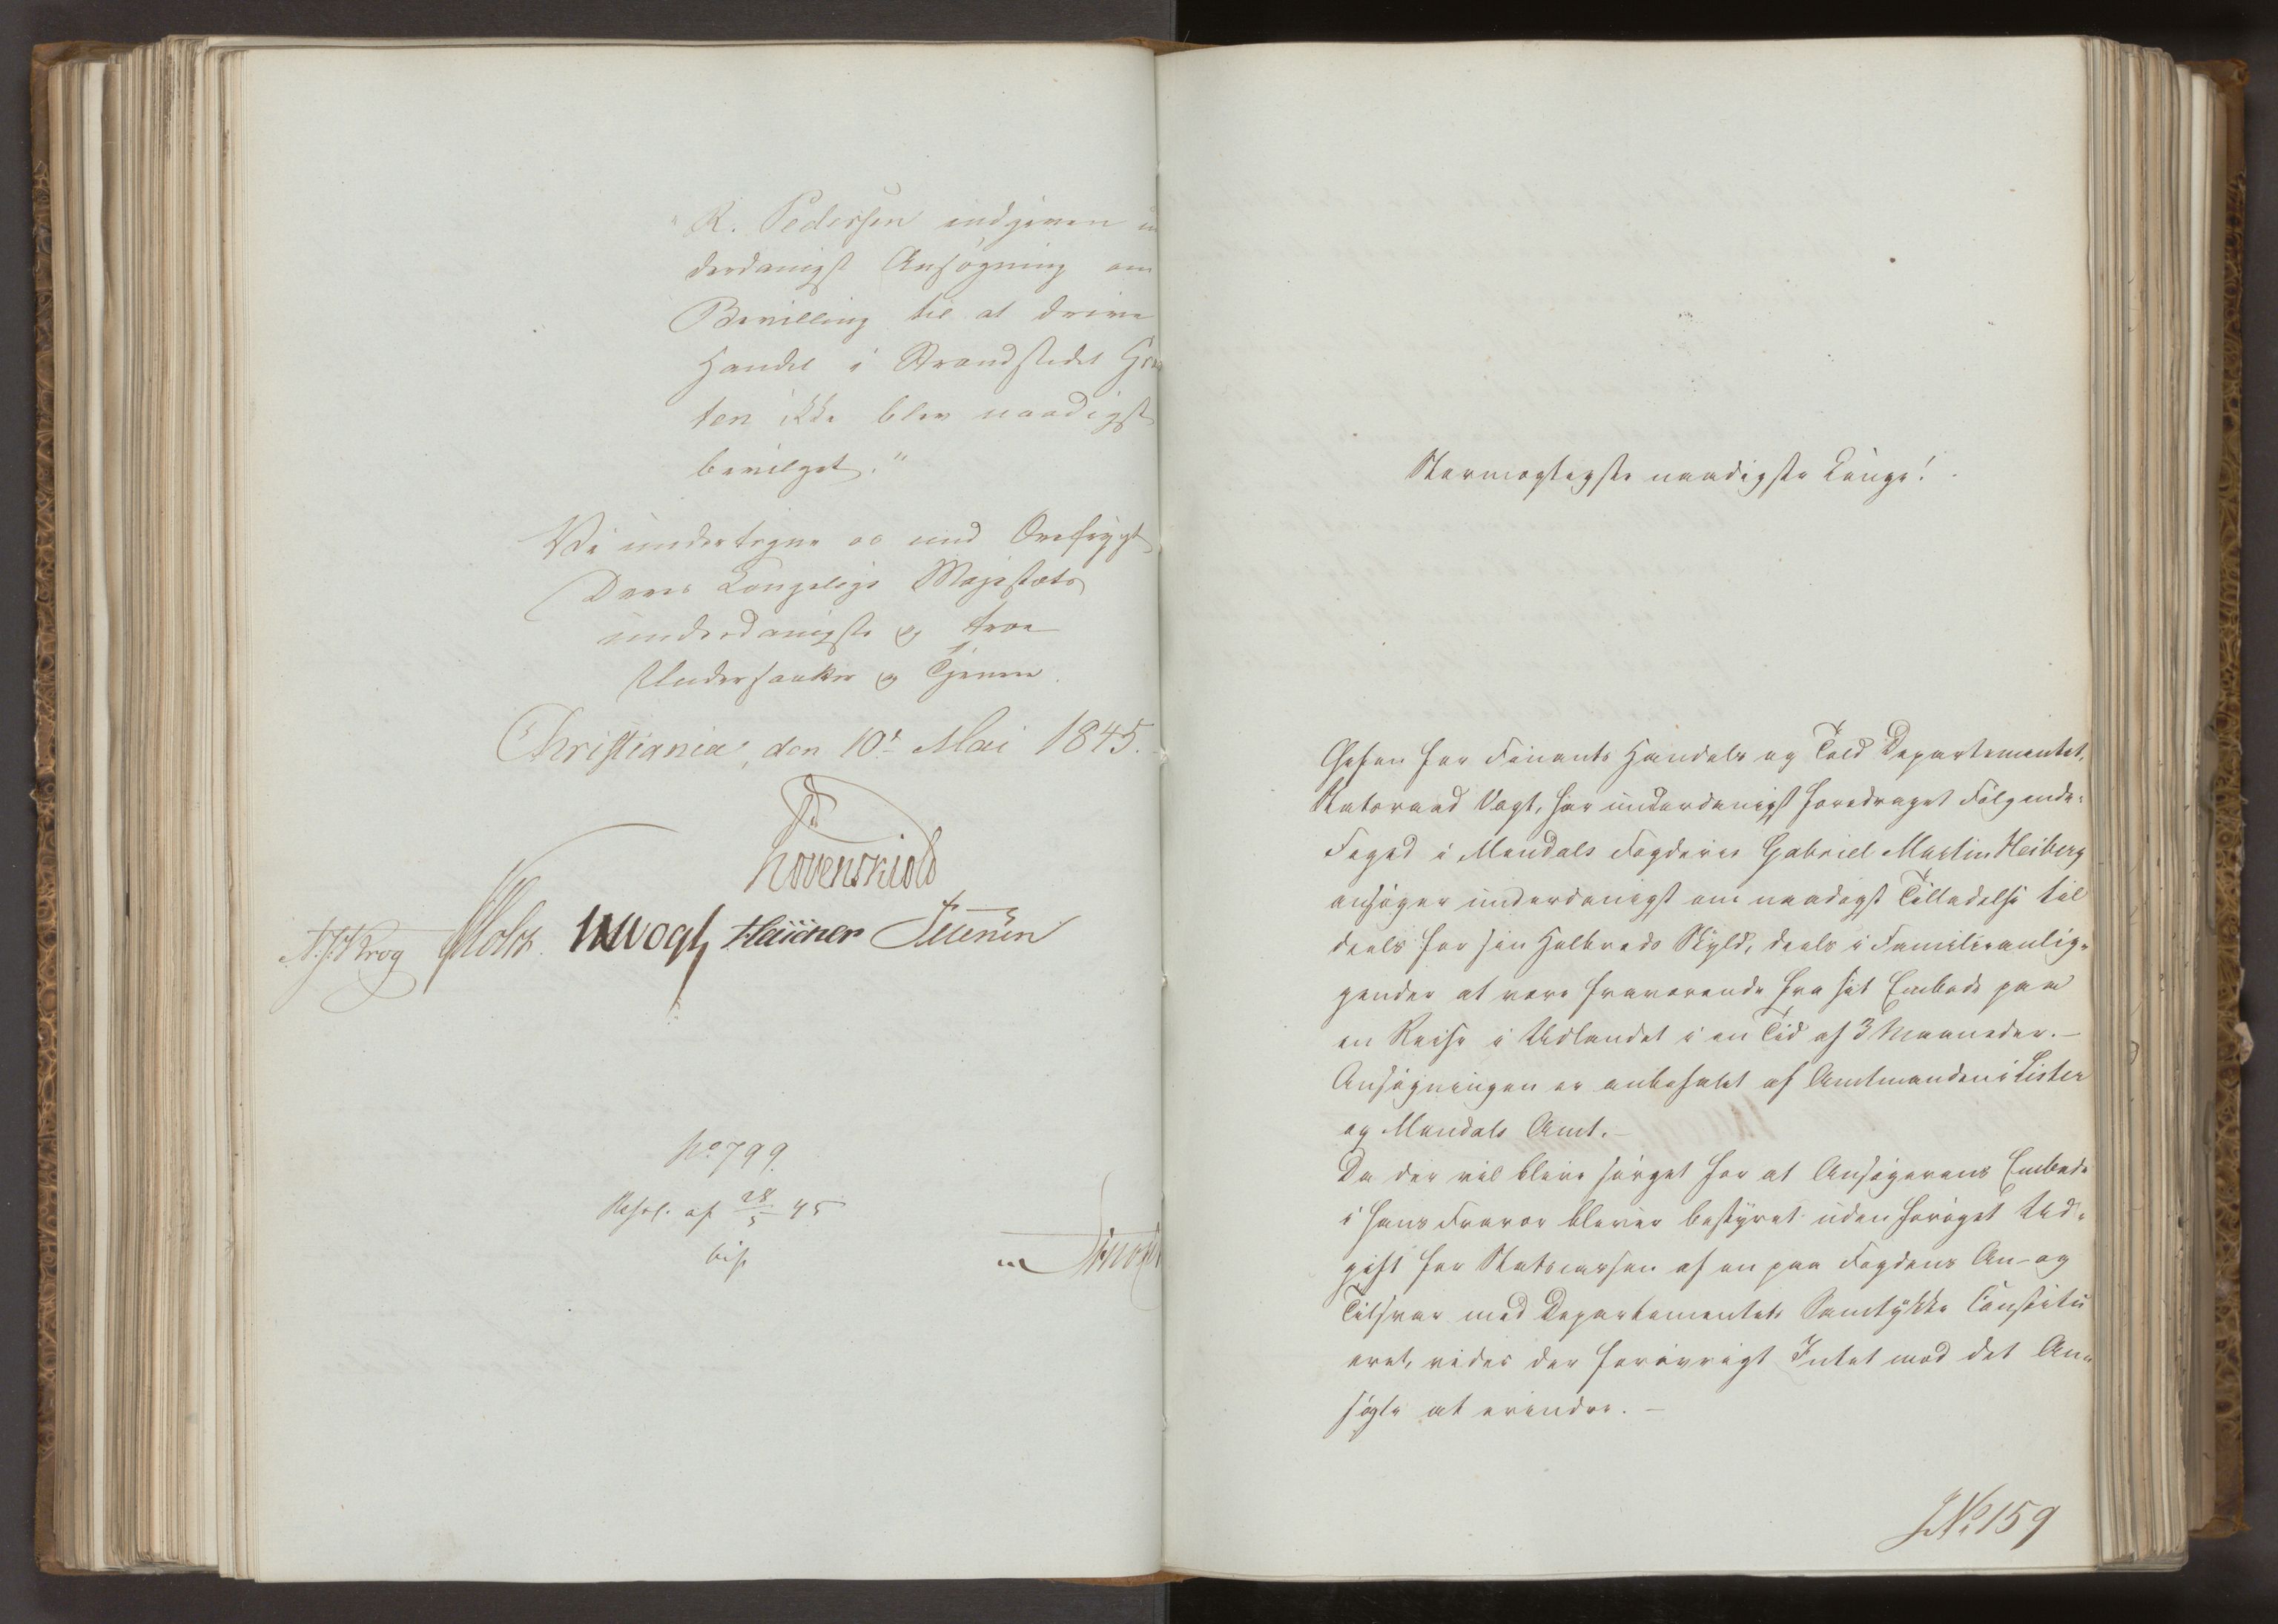 R. Pedersen indgiven un
derdanigst Ansøgning om
Bevilling til at drive
Handel i Strandstedet
ten ikke blev naadigst
bevilget."
Vi undertegne os med Ærefrygt
Deres Kongelige Majestæts
underdanigste og troe
Undersaatter og Tjenere.
Christiania, den 10de Mai 1845.
Løvenskiold
N. J. Krog Holst. Vogt
No 799.
Resol. af 28/5 45
Stormægtigste naadigste Konge!
Chefen for Finants Handels og Told Departementet,
Statsraad Vogt, har underdanigst foredraget Følgende:
Foged i Mandals Fogderie Gabriel Martin Heiberg
ansøger underdanigst om naadigst Tilladelse til
deels for sin Helbreds Skyld, deels i Familieanlig-
gender at være fraværende fra sit Embede paa
en Reise i Udlandet i en Tid af 3 Maaneder. —
Ansøgningen er anbefalet af Amtmanden i Lister
og Mandals Amt. —
Da der vil blive sørget for at Ansøgerens Embede
i hans Fravær bliver bestyret uden forøget Ud-
gift for Statscassen af en paa Fogdens An- og
Tilsvar med Departementets Samtykke Constitu
eret, vides der forøvrigt Intet mod det An-
søgte at erindre. —
JNo 159